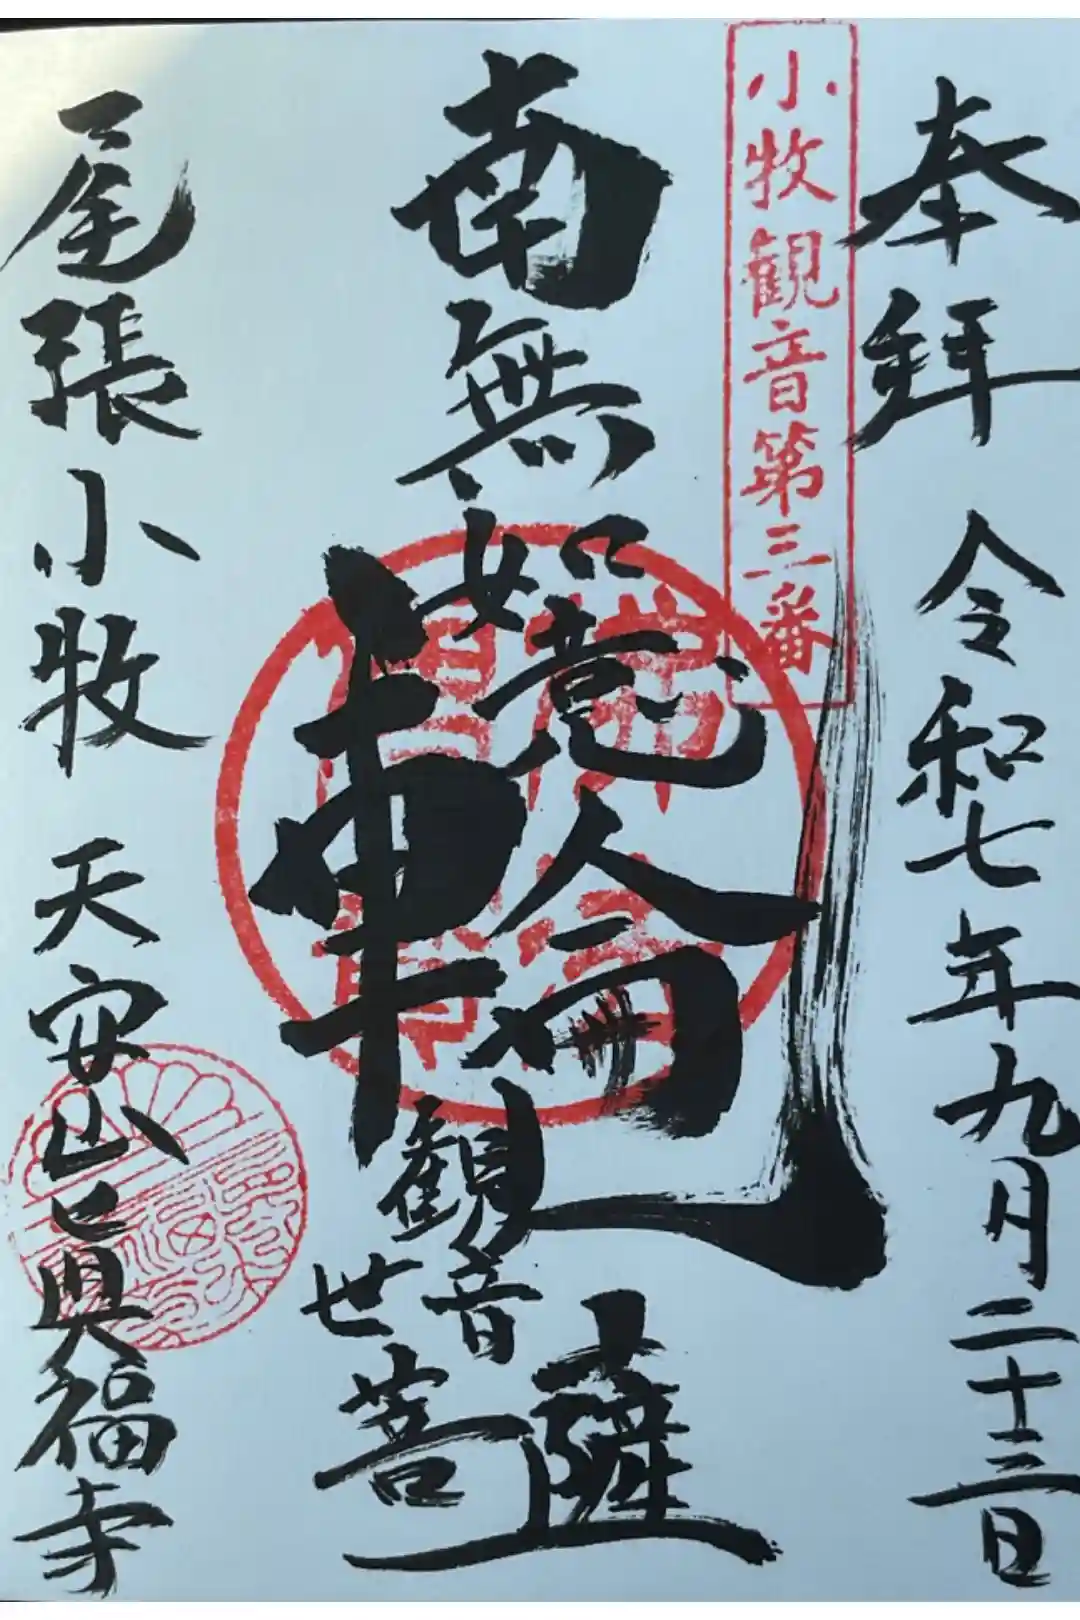 奉拝 令和七年九月二十三日
小牧観音第三番
南無如意輪観世音菩薩
尾張小牧 天安山眞福寺